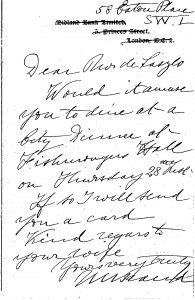 58 Eaton Place
S.W.1
Midland Bank Limited,
5, Princes Street,
London, E.C.2.
Dear Mr de Laszlo
Would it amuse
you to dine at a
City Dinner at
Fishmongers Hall
on Thursday 28 inst.
If so I will send
you a card
Kind regards to
your wife
Yours very truly